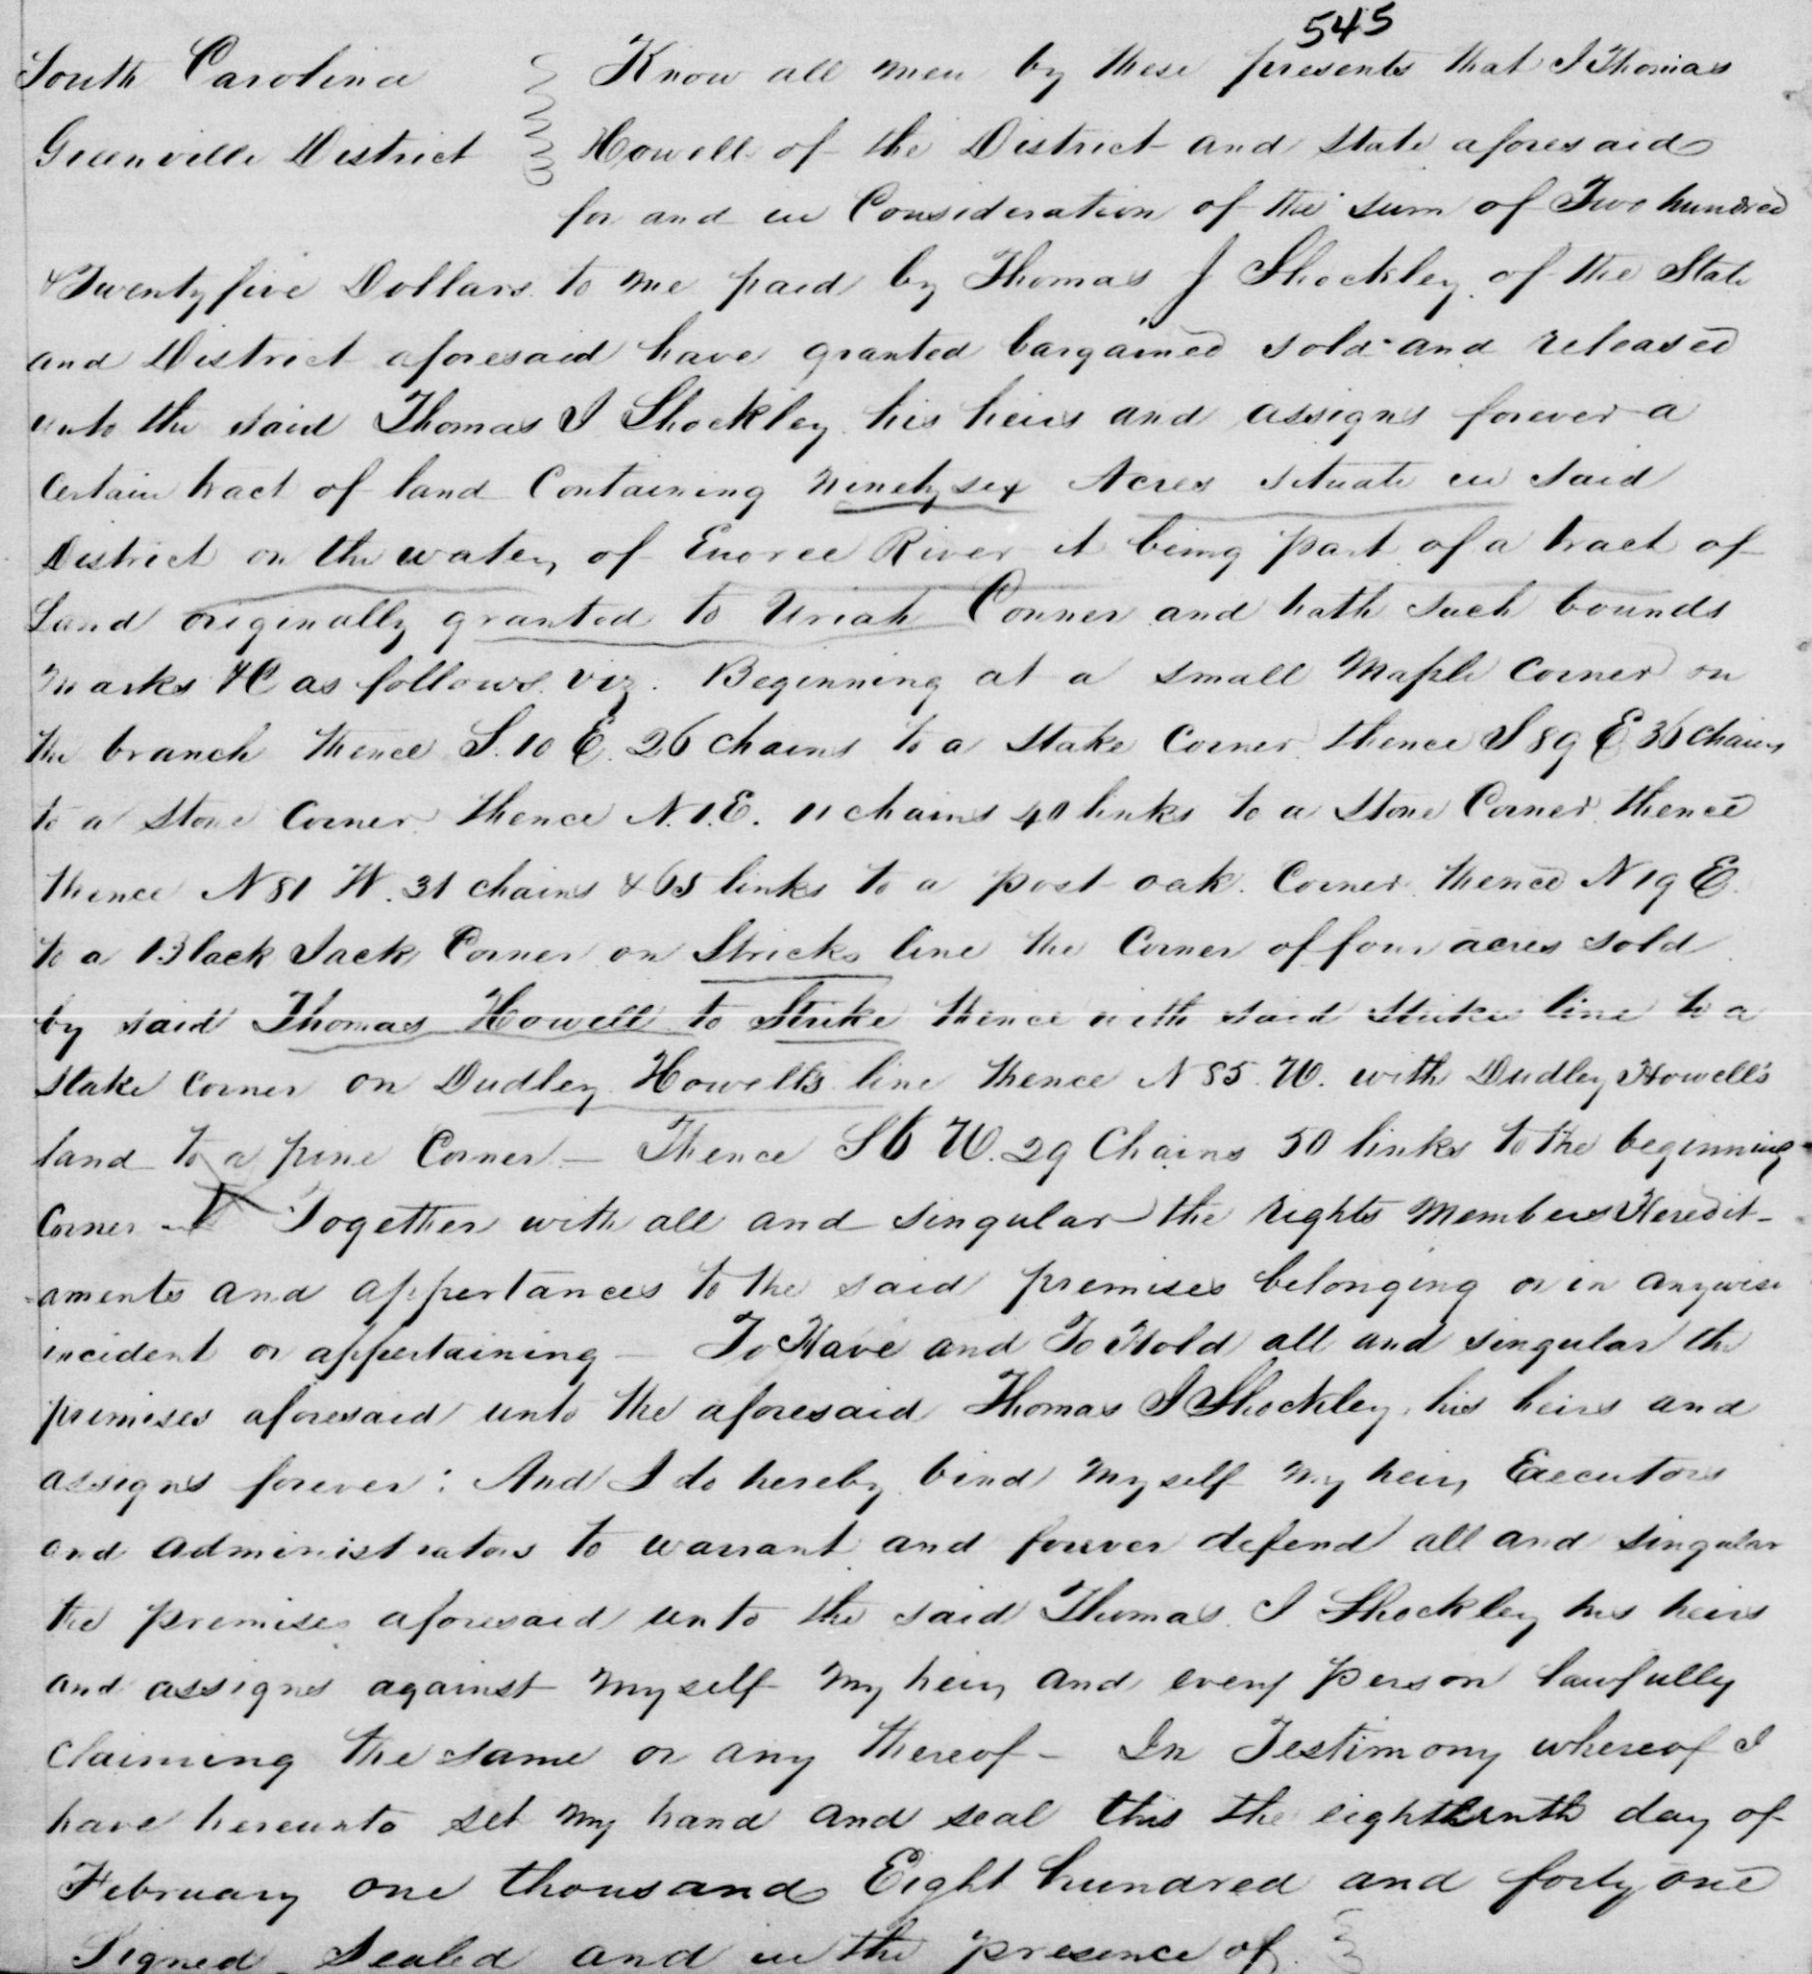 545
South Carolina Know all men by these presents that I Thomas
Greenville District Howell of the District and State aforesaid
for and in Consideration of the sum of Two hundred
& Twenty five Dollars to me paid by Thomas J Shockley of the State
and District aforesaid have granted bargained sold and released
unto the said Thomas J Shockley his heirs and assigns forever a
Certain tract of land Containing ninety six Acres situate in said
District on the waters of Enoree River it being part of a tract of
Land originally granted to Uriah Conner and hath such bounds
marks &C as follows viz. Beginning at a small Maple Corner on
the branch thence S. 10 E. 26 chains to a Stake Corner thence S 89 E 36 chains
to a Stone Corner thence N. 1. E. 11 chains 40 links to a Stone Corner thence
thence N 81 W. 31 chains & 65 links to a post oak Corner thence N 19 E.
to a Black Jack Corner on Stricks line the Corner of four acres sold
by said Thomas Howell to Strike thence with said Strikes line to a
stake corner on Dudley Howells line thence N 85. W. with Dudley Howell's
land to a pine Corner — Thence S 6 W. 29 Chains 50 links to the beginning
Corner Together with all and singular the rights Members Heredit-
aments and appertances to the said premises belonging or in anywise
incident or appertaining — To Have and To Hold all and singular the
premises aforesaid unto the aforesaid Thomas J Shockley his heirs and
assigns forever : And I do hereby bind myself my heirs Executors
and administrators to warrant and forever defend all and singular
the premises aforesaid unto the said Thomas J Shockley his heirs
and assigns against myself my heirs and every person lawfully
claiming the same or any thereof — In Testimony whereof I
have hereunto set my hand and seal this the eighteenth day of
February one thousand Eight hundred and forty one
Signed Sealed and in the presence of